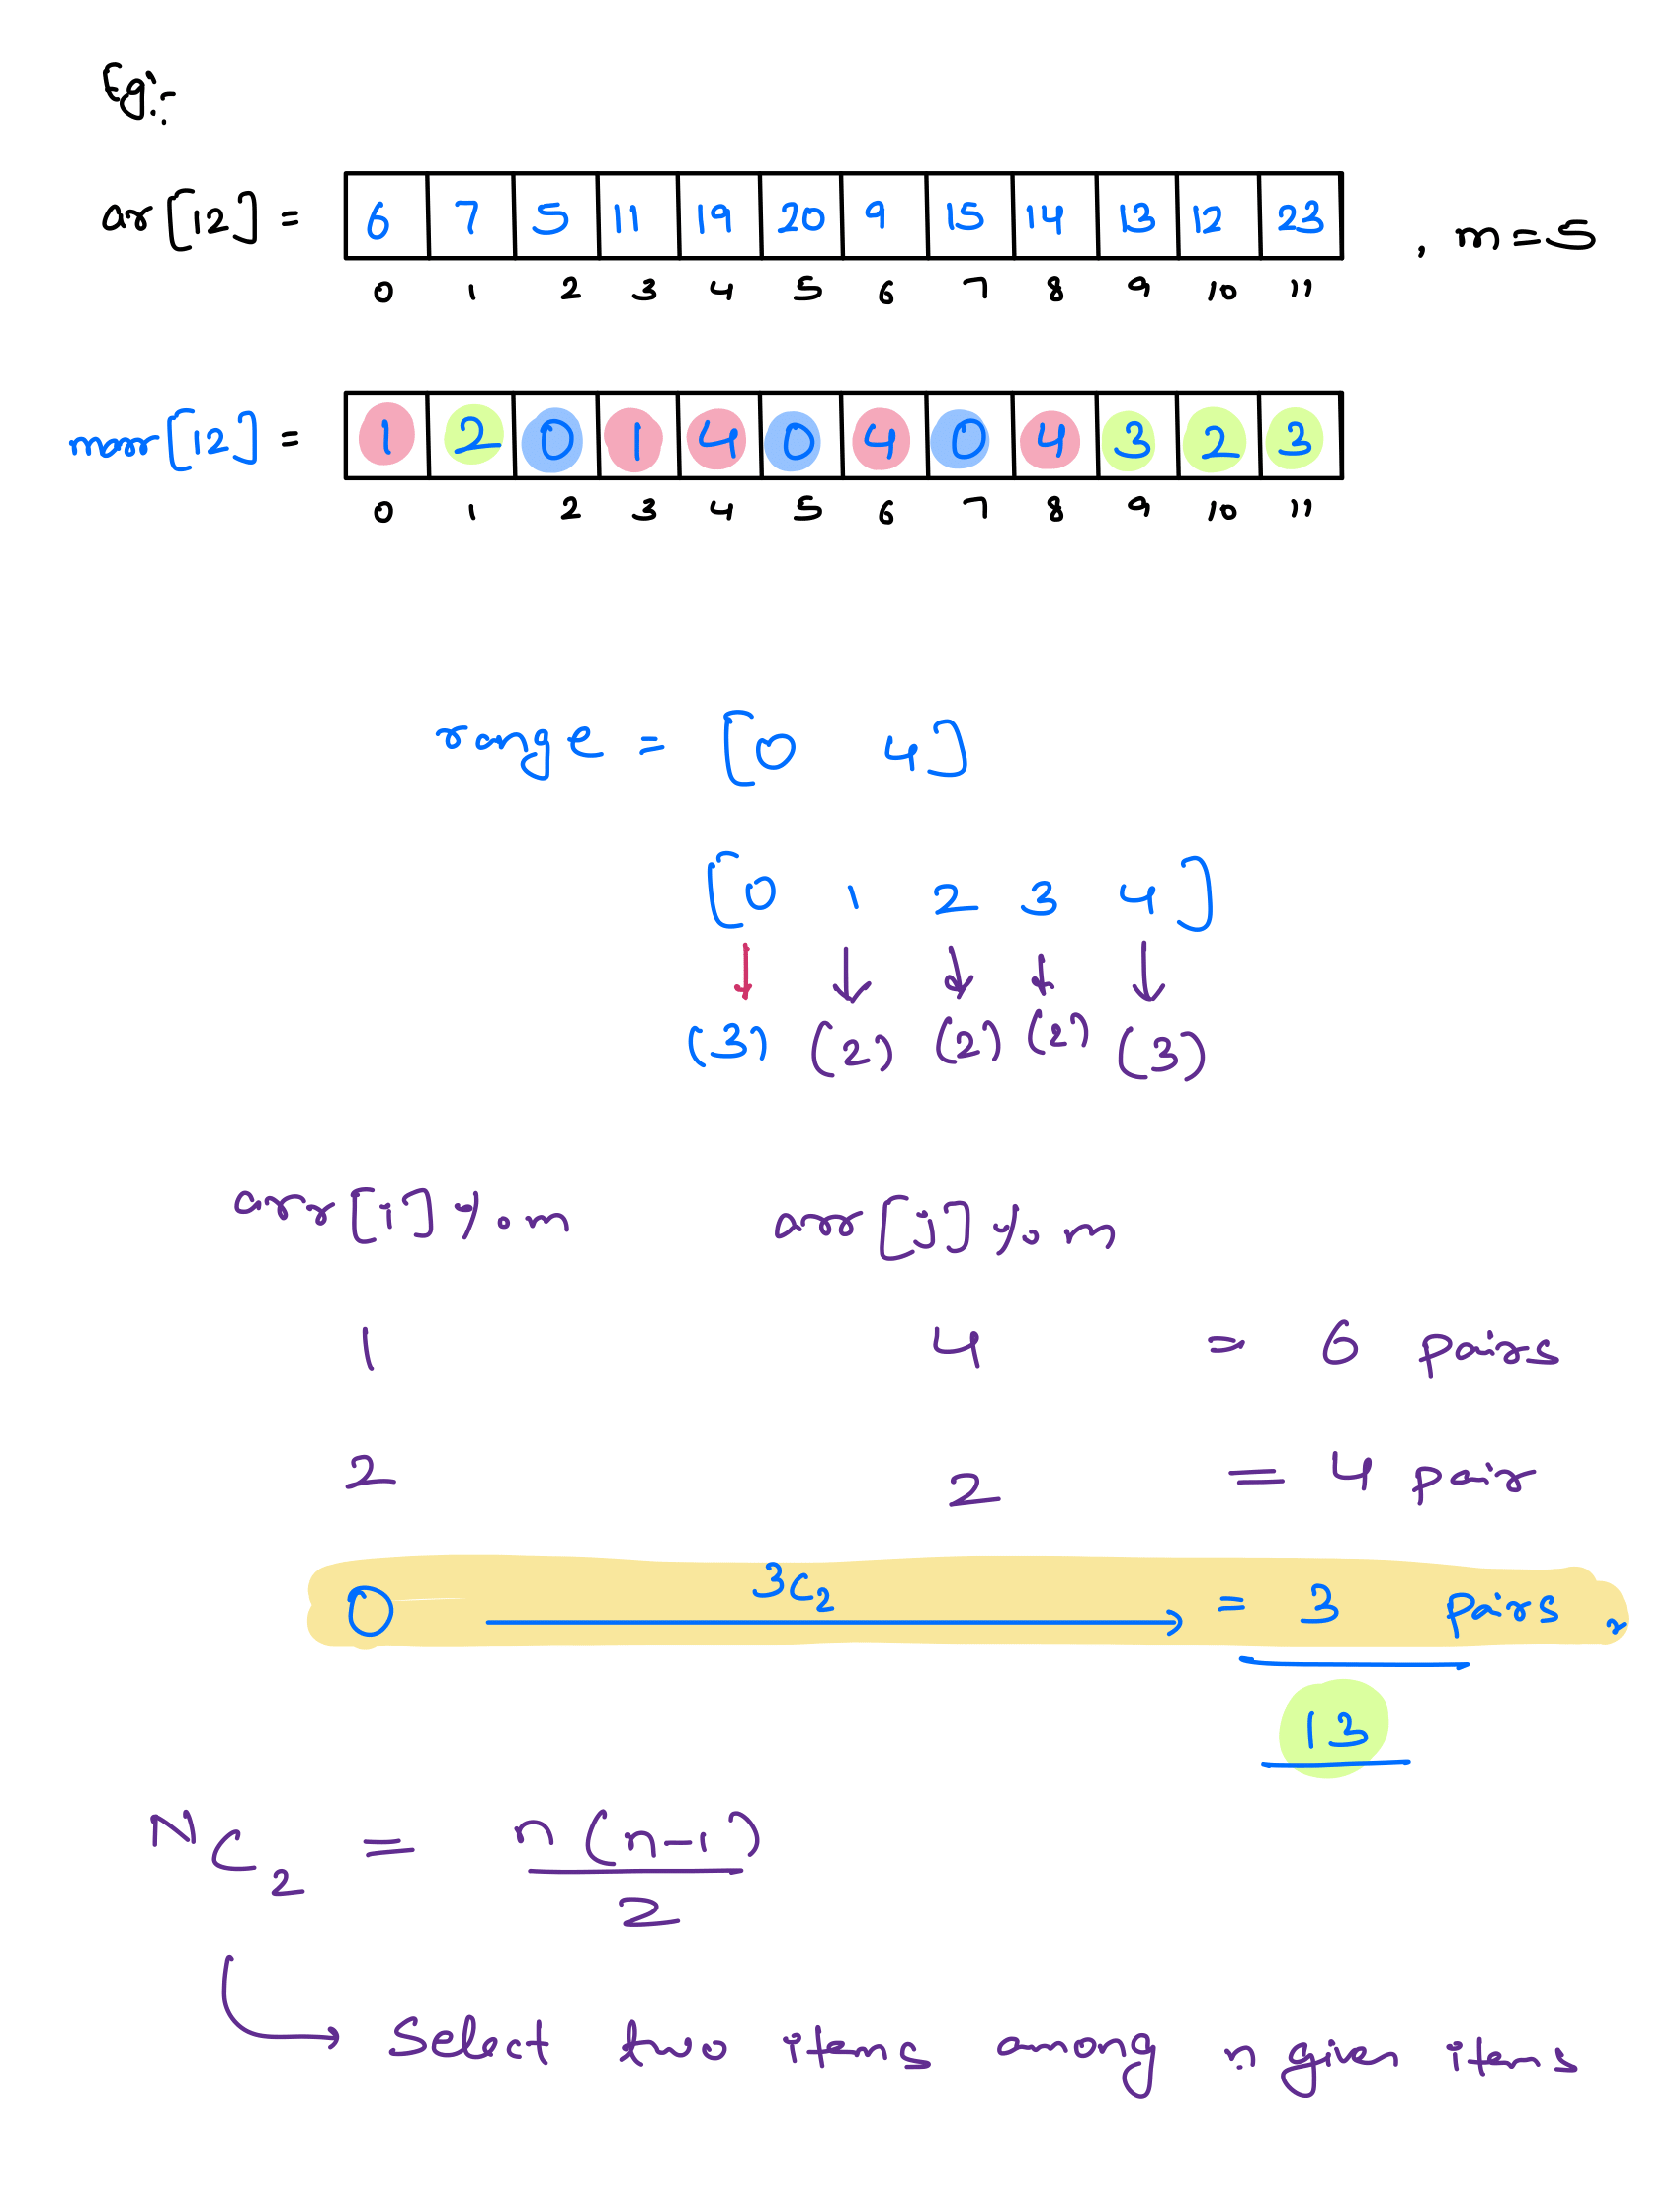 Eg:-
ar[12] = 6 7 5 11 19 20 9 15 14 13 12 23 , m=5
0 1 2 3 4 5 6 7 8 9 10 11
marr[12] = 1 2 0 1 4 0 4 0 4 3 2 3
0 1 2 3 4 5 6 7 8 9 10 11
range = [0 4]
[0 1 2 3 4]
↓ ↓ ↓ ↓ ↓
(3) (2) (2) (2) (3)
arr[i] % m arr[j] % m
1 4 = 6 pairs
2 2 = 4 pair
0 3C2 → = 3 pairs
13
NC2 = n(n-1)/2
→ Select two items among n given items